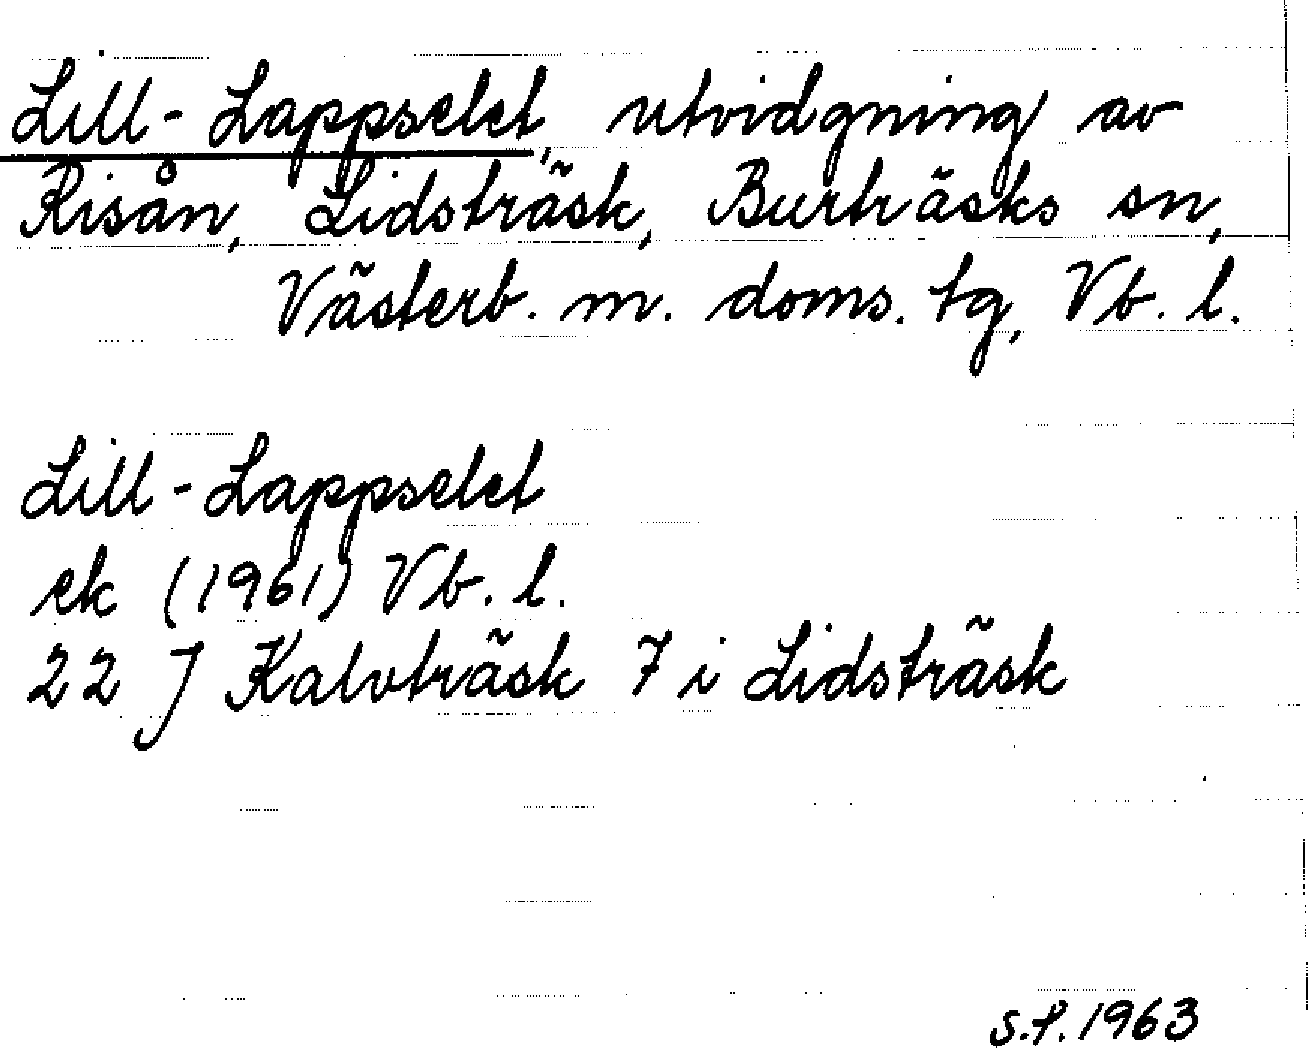 Lill-Lappselet, utvidgning av
Risån, Lidsträsk, Burträsks sn,
Västerb. m. doms. tg, Vb. l.
Lill-Lappselet
ek (1961) Vb. l.
22 J Kalvträsk 7 i Lidsträsk
S.P. 1963